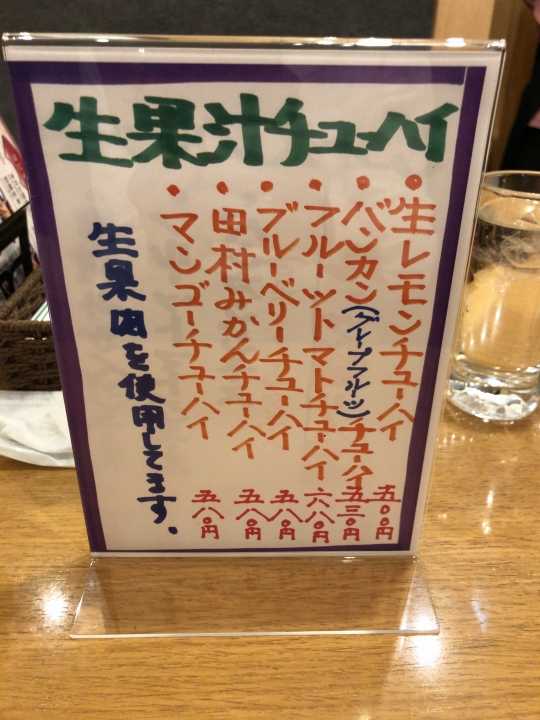 生果汁チューハイ
・生レモンチューハイ 五〇〇円
・バンカン(グレープフルーツ)チューハイ 五三〇円
・フルーツトマトチューハイ 六八〇円
・ブルーベリーチューハイ 五八〇円
・田村みかんチューハイ 五八〇円
・マンゴーチューハイ 五八〇円
生果肉を使用してます。